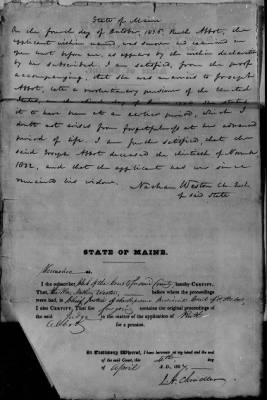 State of Maine
On the fourth day of October, 1838, Ruth Abbot, the
applicant within named, was sworn and examined in
open court before me, as appears by the within declaration
by her subscribed. I am satisfied, from the proof
accompanying, that she was married to Joseph
Abbot, late a revolutionary pensioner of the United
States,
it to have been at an earlier period, which I
doubt not arises from forgetfulness at her advanced
period of life. I am further satisfied that the
said Joseph Abbot deceased the thirtieth of November
1832, and that the applicant has ever since
remained his widow.
Nathan Weston Ch. Just.
of said State
STATE OF MAINE.
Kennebec ss.
I the subscriber, Clerk of the Court hereby CERTIFY,
That Nathan Weston before whom the proceedings
were had, is Chief Justice of the Supreme Judicial Court of
That the foregoing contains the original proceedings of
the said Judge in the matter of the application of Ruth
Abbot for a pension.
In Testimony Whereof, I have hereunto set my hand and the seal
of the said Court, this 4th day
of April A. D. 18
Chandler